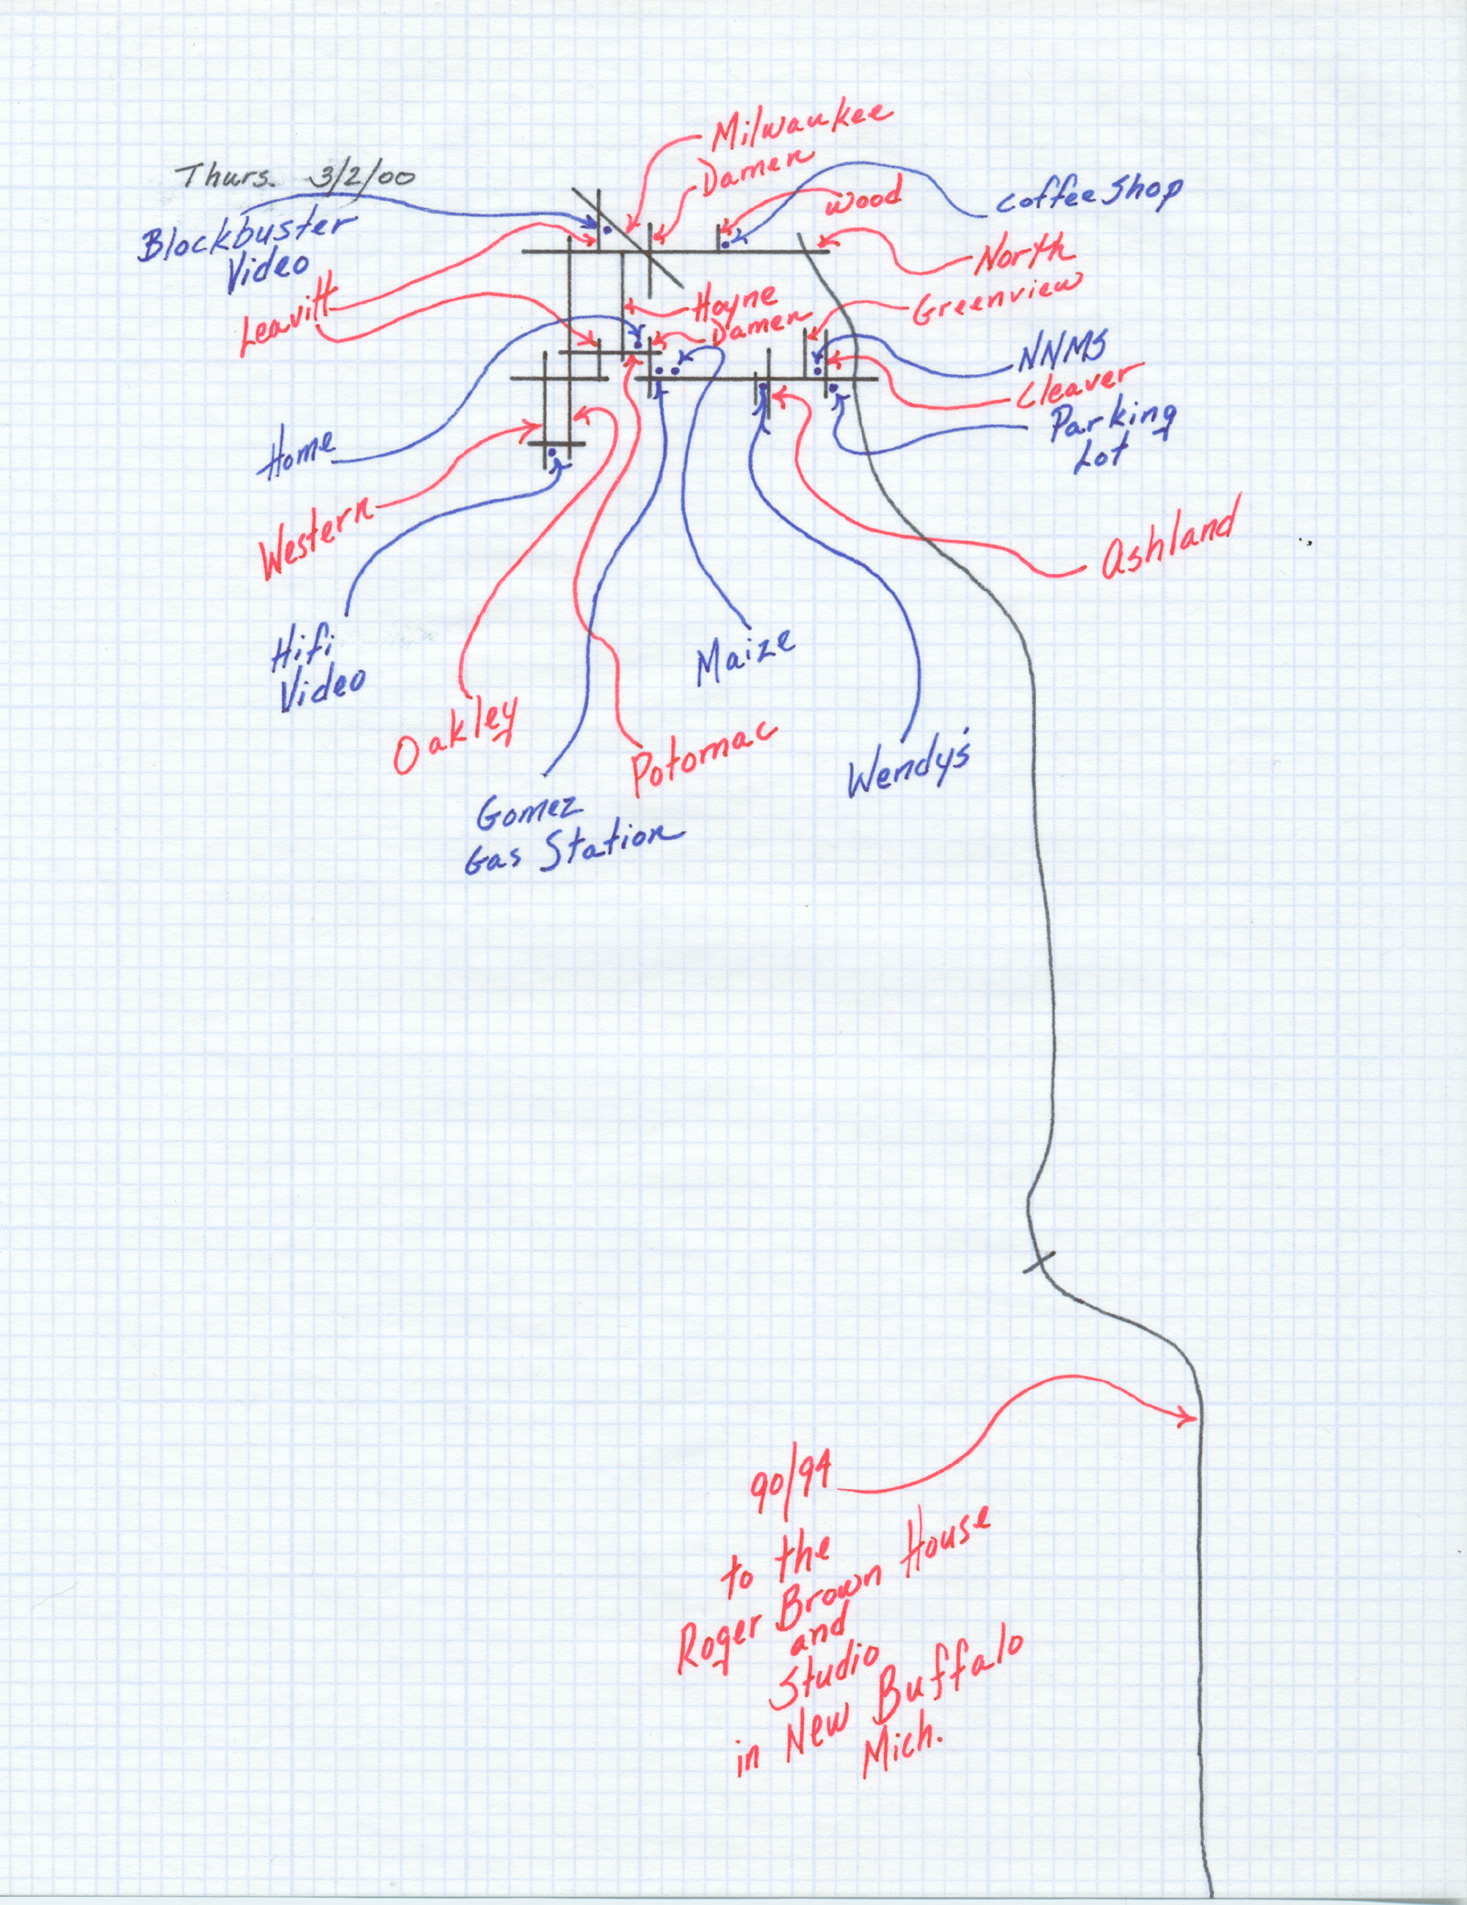 Thurs. 3/2/00
Milwaukee
Damen
Wood
Coffee Shop
Blockbuster
Video
North
Leavitt
Hoyne
Greenview
Damen
NNMS
Cleaver
Home
Parking
Lot
Western
Ashland
Hifi
Video
Maize
Oakley
Potomac
Wendy's
Gomez
Gas Station
90/94
to the
Roger Brown House
and
Studio
in New Buffalo
Mich.